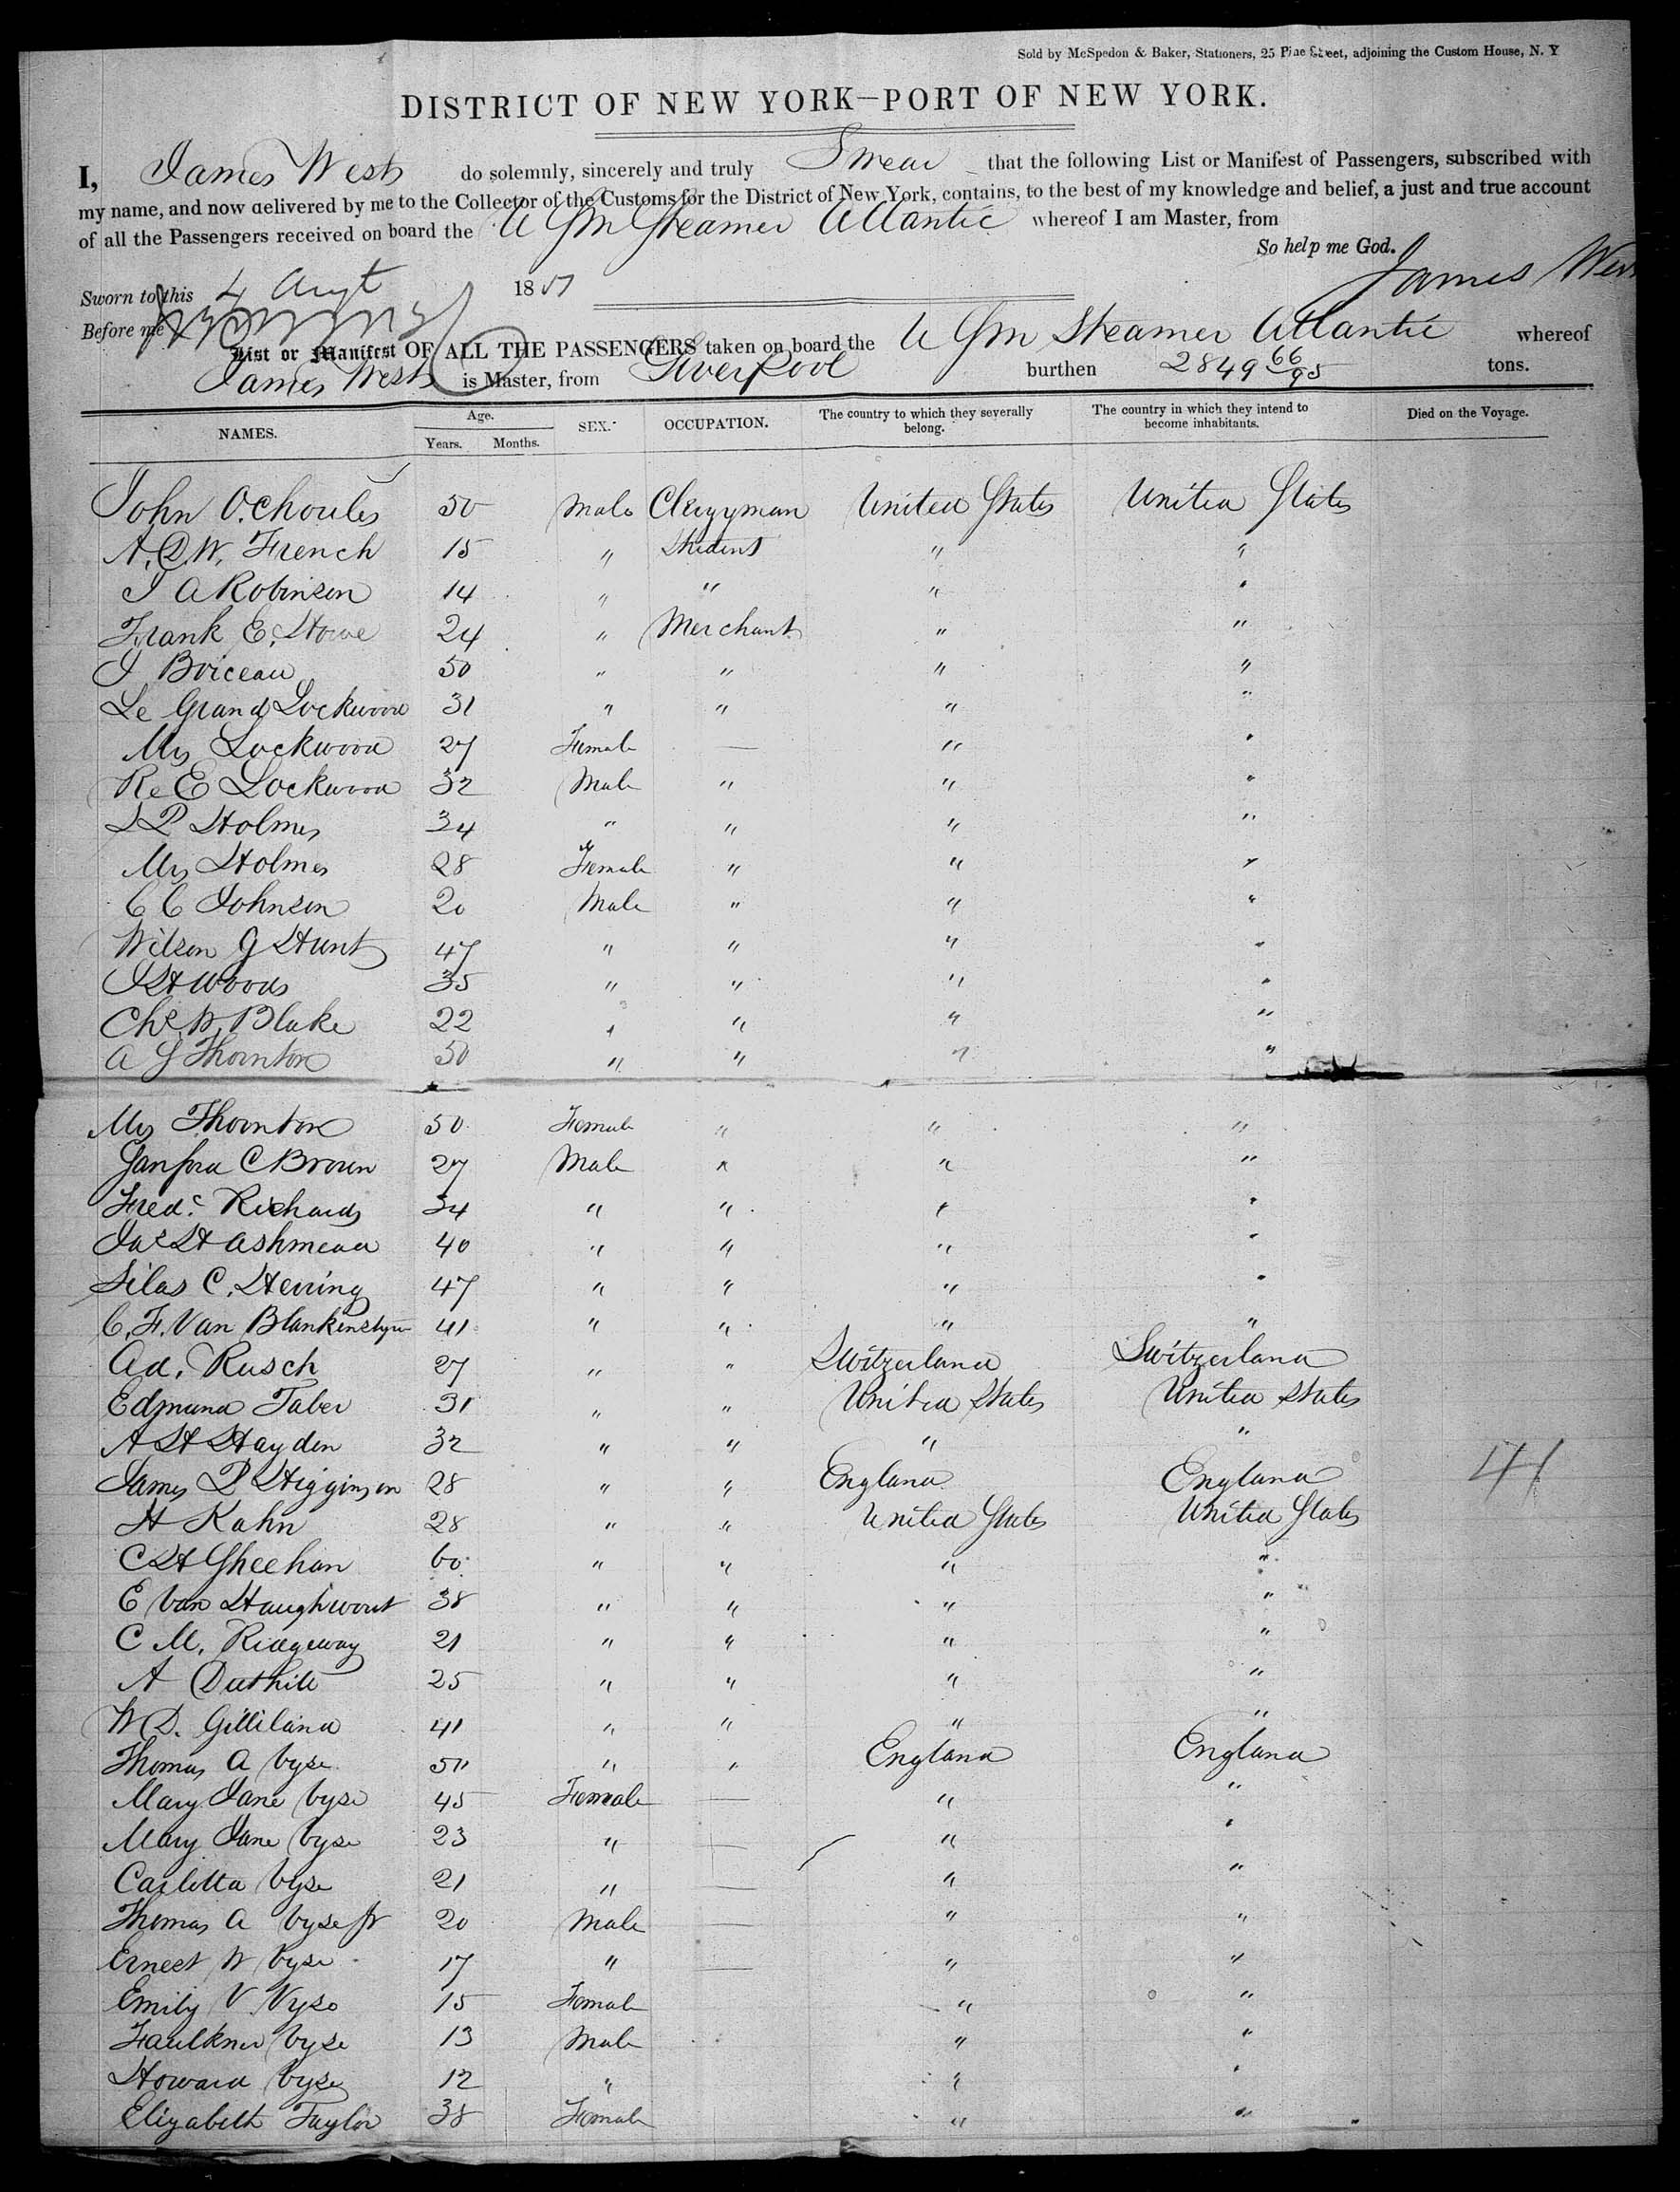 Sold by McSpedon & Baker, Stationers, 25 Pine Street, adjoining the Custom House, N. Y
DISTRICT OF NEW YORK—PORT OF NEW YORK.
I, James West do solemnly, sincerely and truly Swear that the following List or Manifest of Passengers, subscribed with
my name, and now delivered by me to the Collector of the Customs for the District of New York, contains, to the best of my knowledge and belief, a just and true account
of all the Passengers received on board the U S M Steamer Atlantic whereof I am Master, from
So help me God.
James West
Sworn to this 4 Augt 1851
Before me
List or Manifest OF ALL THE PASSENGERS taken on board the U S M Steamer Atlantic whereof
James West is Master, from Liverpool burthen 2849 66/95 tons.
NAMES. Age. Years. Months. SEX. OCCUPATION. The country to which they severally belong. The country in which they intend to become inhabitants. Died on the Voyage.
John O. Choules 50 Male Clergyman United States United States
A. D. W. French 15 " Student " "
J A Robinson 14 " " " "
Frank E. Howe 24 " Merchant " "
J Boiceau 50 " " " "
Le Grand Lockwood 31 " " " "
Mrs Lockwood 27 Female — " "
Re E Lockwood 32 Male " " "
S P Holmes 34 " " " "
Mrs Holmes 28 Female " " "
C C Johnson 20 Male " " "
Wilson G Hunt 47 " " " "
J H Woods 35 " " " "
Chs W. Blake 22 " " " "
A G Thornton 50 " " " "
Mrs Thornton 50 Female " " "
Sanford C Brown 27 Male " " "
Fredc Richards 34 " " " "
Jas H Ashmead 40 " " " "
Silas C. Herring 47 " " " "
C. F. Van Blankensteyn 41 " " " "
Ad. Rusch 27 " " Switzerland Switzerland
Edmund Taber 31 " " United States United States
A H Hayden 32 " " " "
James P Higginson 28 " " England England 41
H Kahn 28 " " United States United States
C H Sheehan 60 " " " "
E Van Haughwout 38 " " " "
C M. Ridgeway 21 " " " "
A Duthile 25 " " " "
W D. Gilliland 41 " " " "
Thomas A Vyse 50 " " England England
Mary Jane Vyse 45 Female — " "
Mary Jane Vyse 23 " — " "
Carlotta Vyse 21 " — " "
Thomas A Vyse Jr 20 Male — " "
Ernest W Vyse 17 " — " "
Emily V Vyse 15 Female " "
Faulkner Vyse 13 Male " "
Howard Vyse 12 " " "
Elizabeth Taylor 38 Female " "